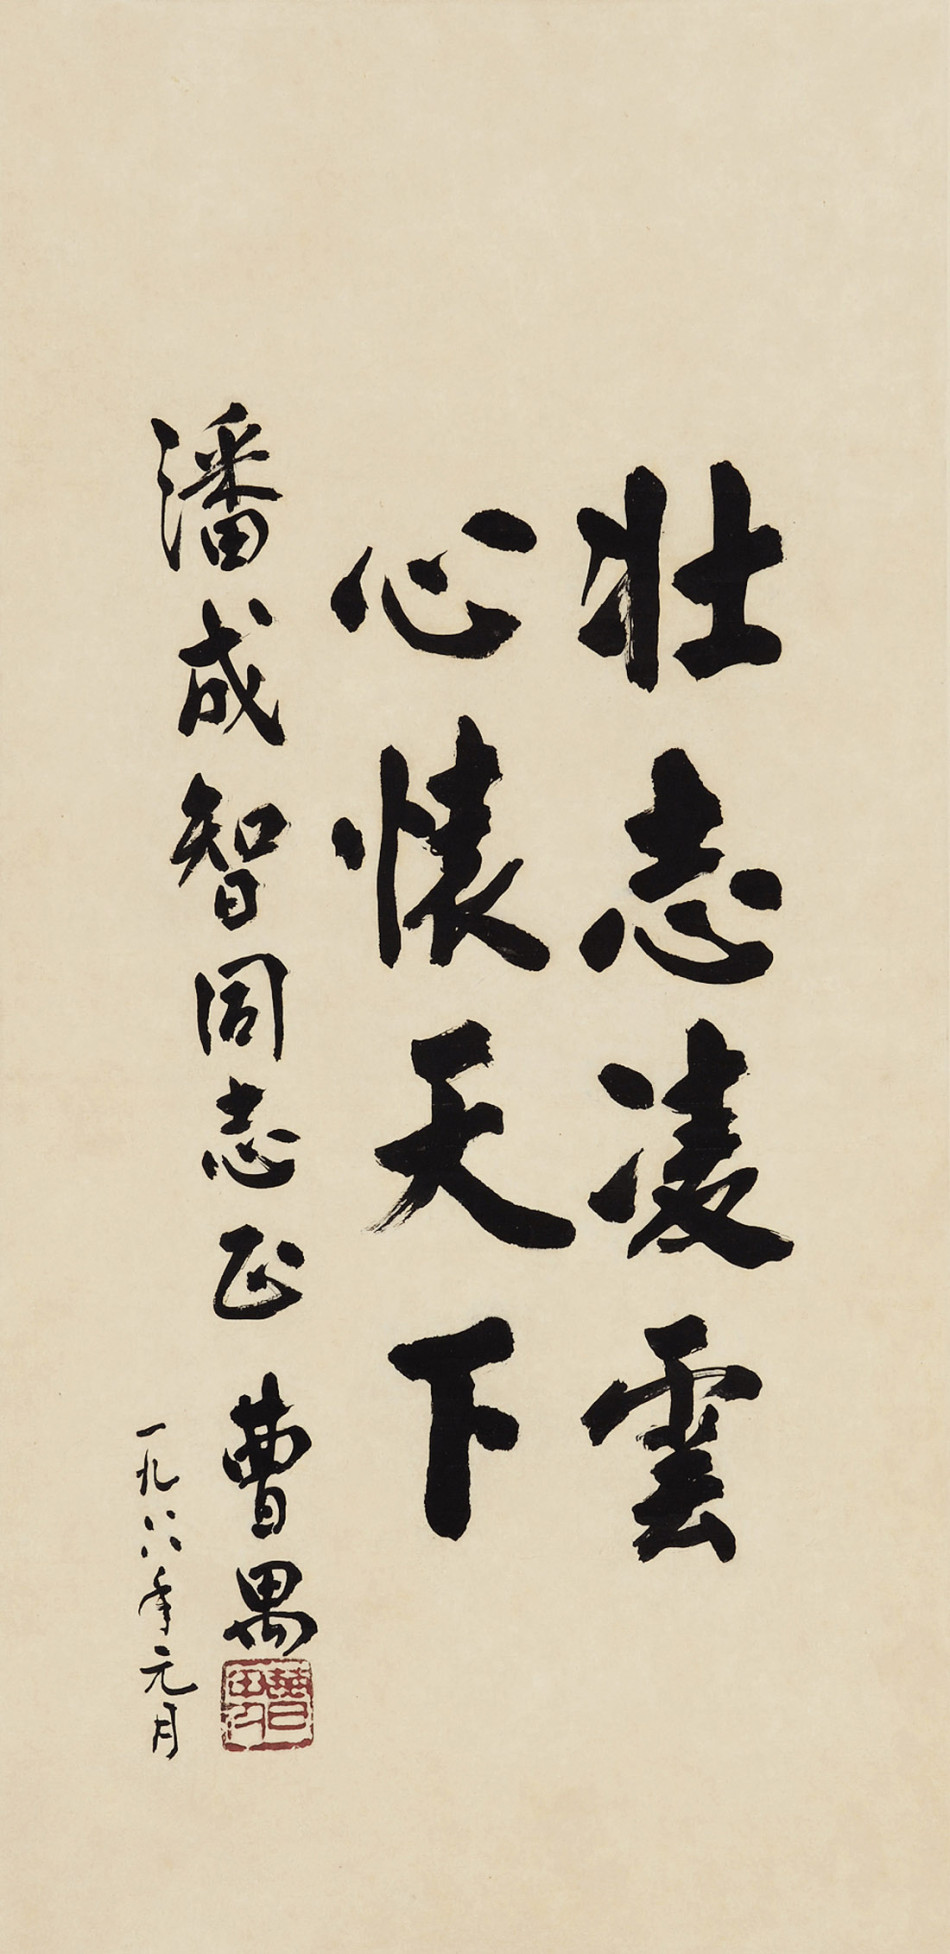 壮志凌雲
心懐天下
潘成智同志正
曹禺
一九八八年元月
曹禺